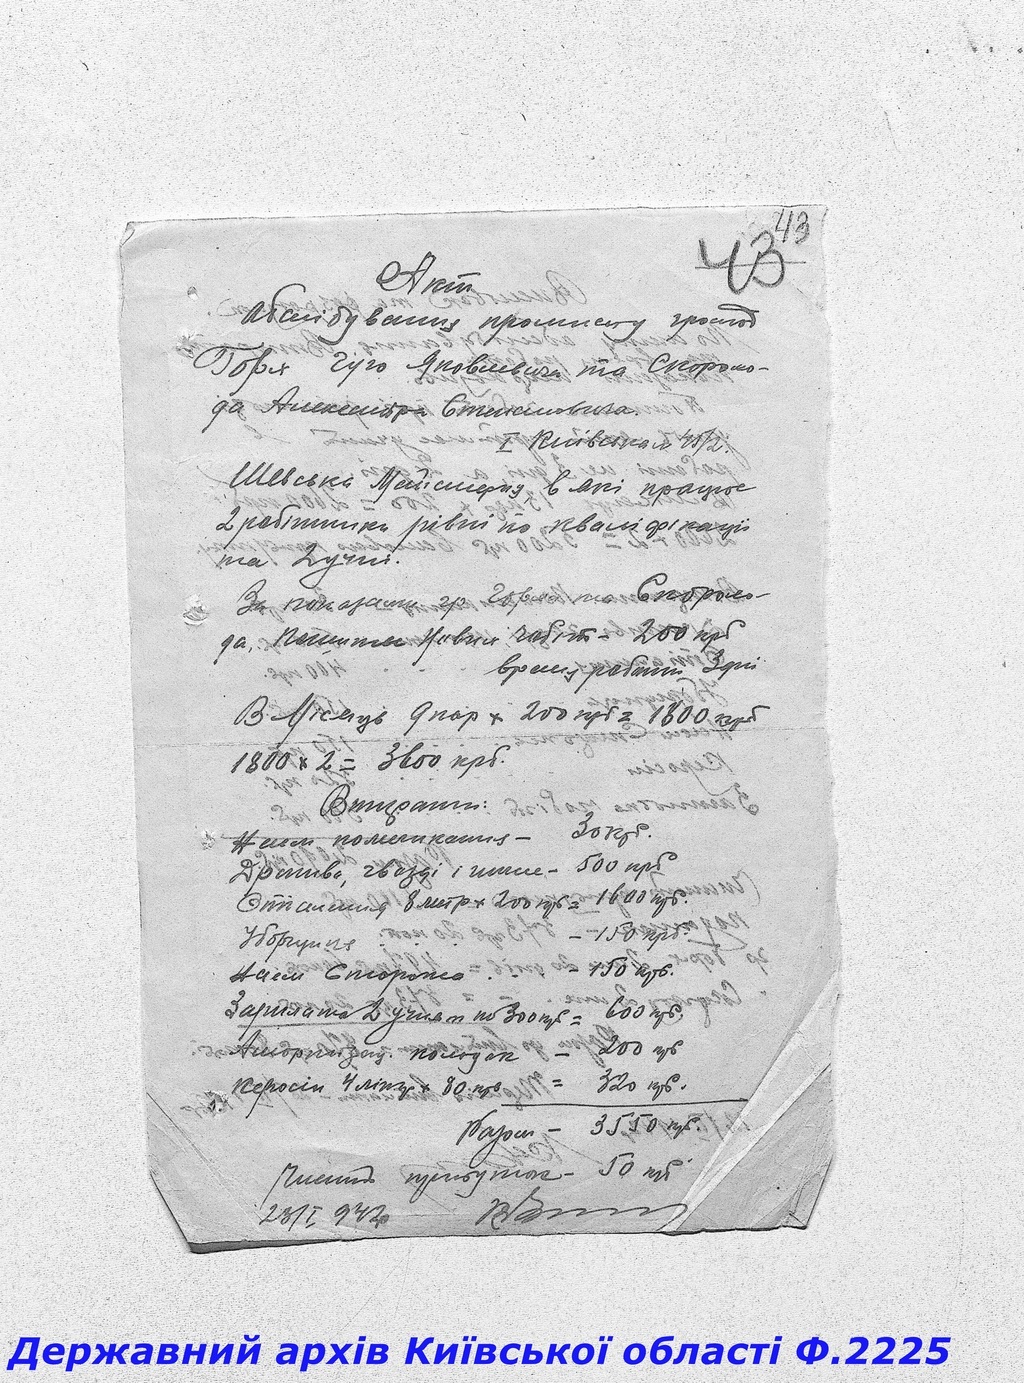 43
43
Акт
Обслідування промислу громад
Горя Гуго Яковлевича та Скоромо-
да Александра Степановича.
І Київська № 41/2.
Шевська Майстерня, в які працює
2 робітника рівні по кваліфікації
та 2 учні.
За показами гр Горя та Скоромо-
да, нових чобіт – 200 крб
время работи 3 дні
В Місяць 9 пар х 200 крб = 1800 крб
1800 х 2 = 3600 крб.
Витрати:
Наем помешкання – 30 крб.
Дратва, гвозді і инше – 500 крб
Отпалення 8 метр х 200 крб = 1600 крб.
Уборщиця – 150 крб.
Наем Сторожа – 150 крб.
Зарплата 2 учням по 300 крб = 600 крб.
Амортизац. колодок – 200 крб
Керосін 4 літр х 80 крб = 320 крб.
Разом – 3550 крб.
Чистий прибуток – 50 крб
23/I 942р
Державний архів Київської області Ф.2225